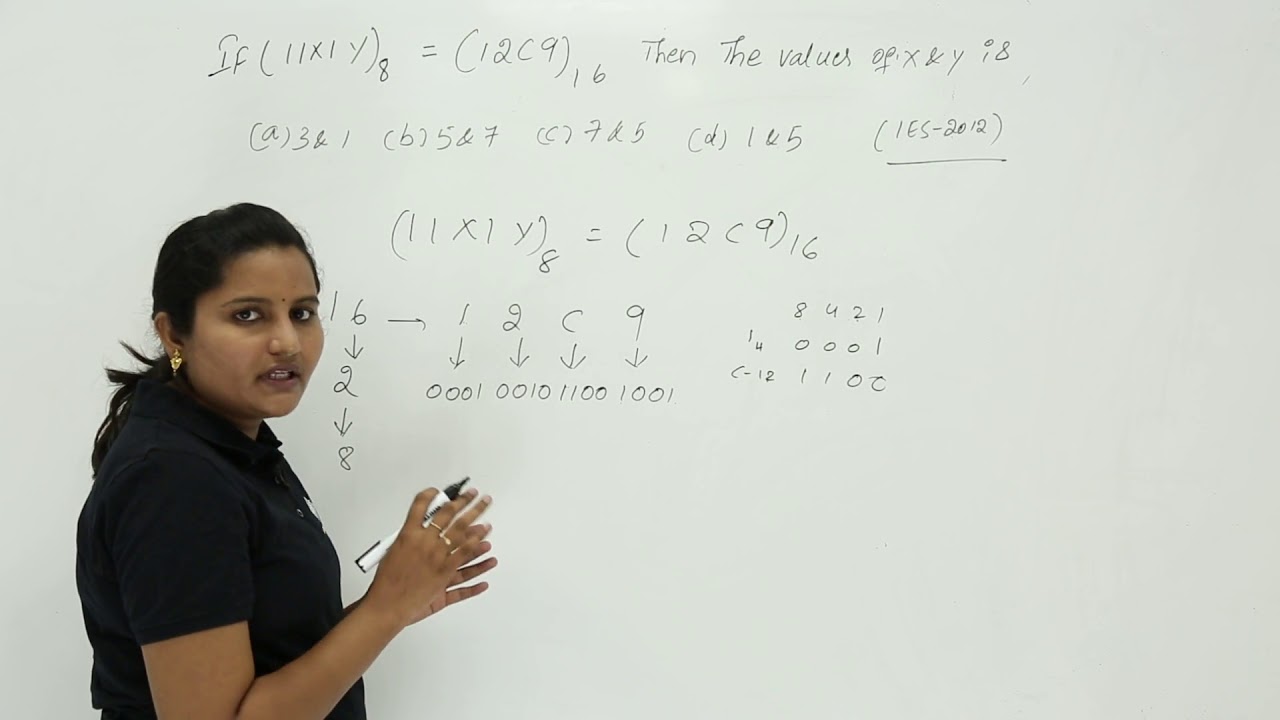 If (11X1Y)8 = (12C9)16 Then The values of x & y is,
(a) 3&1 (b) 5&7 (c) 7&5 (d) 1&5 (IES-2012)
(11X1Y)8 = (12C9)16
16 → 1 2 C 9
↓ ↓ ↓ ↓ ↓
2 0001 0010 1100 1001
↓
8
8 4 2 1
0 0 0 1
C-12 1 1 0 0